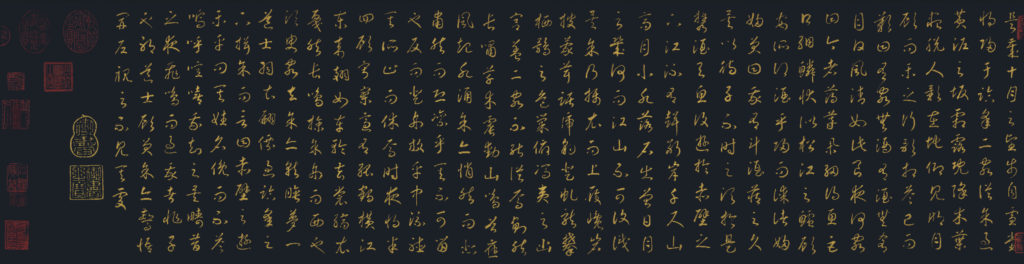 是歲十月之望步自雪堂
將歸于臨皋二客從余過
黃泥之坂霜露既降木葉
盡脫人影在地仰見明月
顧而樂之行歌相答已而
歎曰有客無酒有酒無肴
月白風清如此良夜何客
曰今者薄暮舉網得魚巨
口細鱗狀似松江之鱸顧
安所得酒乎歸而謀諸婦
婦曰我有斗酒藏之久
矣以待子不時之須於是
攜酒與魚復遊於赤壁之
下江流有聲斷岸千尺山
高月小水落石出曾日月
之幾何而江山不可復識
矣余乃攝衣而上履巉岩
披蒙茸踞虎豹登虬龍攀
棲鶻之危巢俯馮夷之幽
宮蓋二客不能從焉劃然
長嘯草木震動山鳴谷應
風起水涌余亦悄然而悲
肅然而恐凜乎其不可留
也反而登舟放乎中流聽
其所止而休焉時夜將半
四顧寂寥適有孤鶴橫江
東來翅如車輪玄裳縞衣
戛然長鳴掠余舟而西也
須臾客去余亦就睡夢一
道士羽衣翩僊過臨皋之
下揖余而言曰赤壁之遊
樂乎問其姓名俛而不答
嗚呼噫嘻我知之矣疇昔
之夜飛鳴而過我者非子
也耶道士顧笑余亦驚悟
開戶視之不見其處